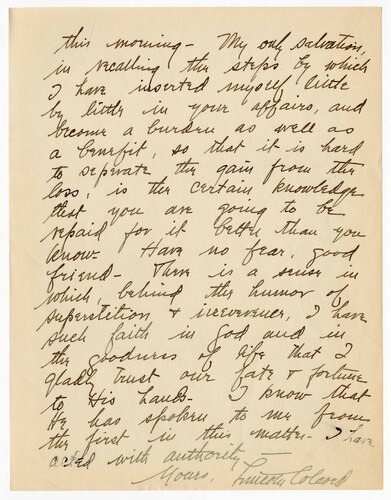 this morning - My only salvation,
in recalling the steps by which
I have inserted myself little
by little in your affairs, and
become a burden as well as
a benefit, so that it is hard
to seperate the gain from the
loss, is the certain knowledge
that you are going to be
repaid for it better than you
know. Have no fear, good
friend - There is a sense in
which, behind the humor of
superstition & irreverence, I have
such faith in God and in
the goodness of life that I
gladly trust our fate & fortune
to His hands. I know that
He has spoken to me from
the first in this matter - I have
acted with authority -
Yours, Lincoln Colcord